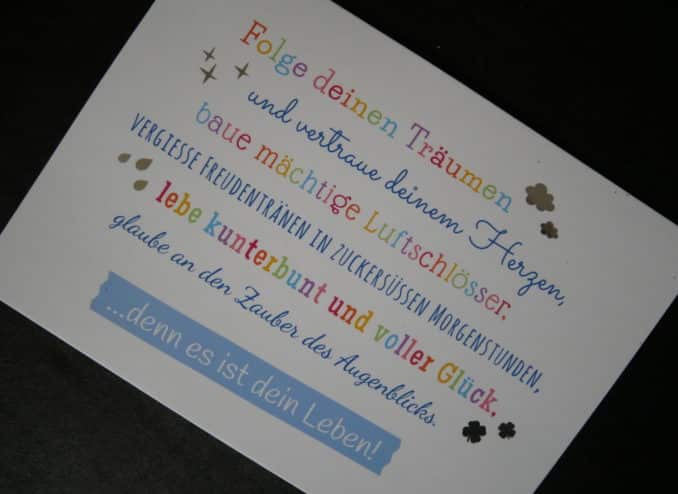 Folge deinen Träumen
und vertraue deinem Herzen,
baue mächtige Luftschlösser.
VERGIESSE FREUDENTRÄNEN IN ZUCKERSÜSSEN MORGENSTUNDEN,
lebe kunterbunt und voller Glück,
glaube an den Zauber des Augenblicks.
...denn es ist dein Leben!